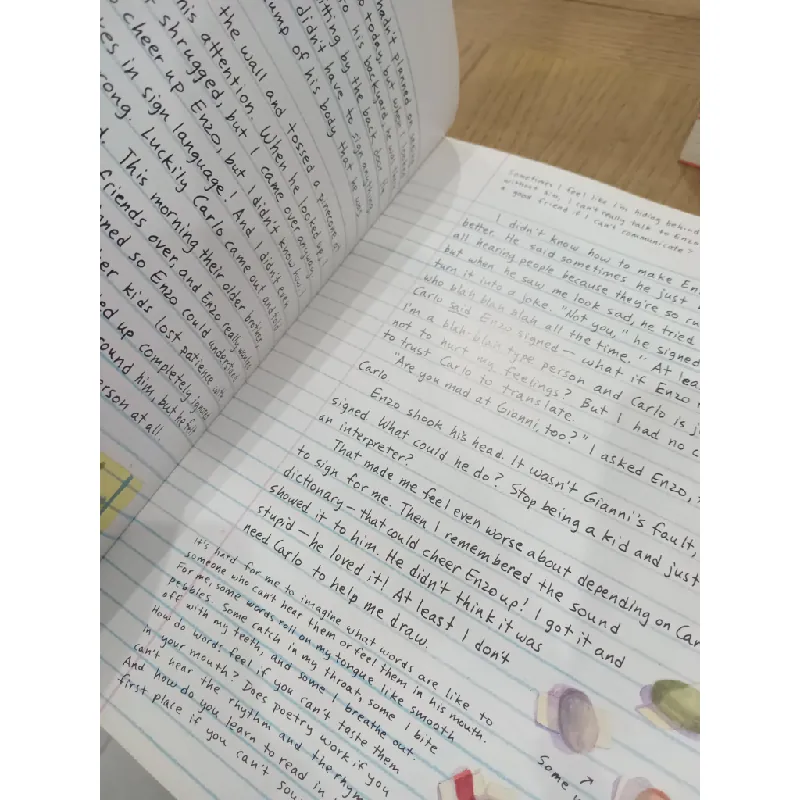 hadn't planned on
today, but when I
his backyard, he
sitting by the back
didn't have to sign anything
ump of his body that he was
the wall and tossed a pinecone at
his attention. When he looked up, I
shrugged, but I came over anyway.
cheer up Enzo, but I didn't know how
es in sign language! And I didn't even
rong. Luckily Carlo came out and told
d. This morning their older brother
friends over, and Enzo really wanted
ned so Enzo could understand
er kids lost patience with
ed up completely ignoring
ound him, but he felt
erson at all.
Sometimes I feel like I'm hiding behind
without him, I can't really talk to Enzo
a good friend if I can't communicate?
I didn't know how to make En
better. He said sometimes he just
all hearing people because they're so ru
but when he saw me look sad, he tried
turn it into a joke. "Not you," he signed
who blah blah blah all the time." At lea
Carlo said Enzo signed — what if Enzo
I'm a blah-blah type person and Carlo is j
not to hurt my feelings? But I had no c
to trust Carlo to translate.
"Are you mad at Gianni, too?" I asked Enzo,
Carlo
Enzo shook his head. It wasn't Gianni's fault,
signed. What could he do? Stop being a kid and just
an interpreter?
That made me feel even worse about depending on Car
to sign for me. Then I remembered the sound
dictionary — that could cheer Enzo up! I got it and
showed it to him. He didn't think it was
stupid — he loved it! At least I don't
need Carlo to help me draw.
It's hard for me to imagine what words are like to
someone who can't hear them or feel them in his mouth.
For me, some words roll on my tongue like smooth
pebbles. Some catch in my throat, some I bite
off with my teeth, and some I breathe out.
How do words feel if you can't taste them
in your mouth? Does poetry work if you
can't hear the rhythm and the rhym
And how do you learn to read in
first place if you can't sou
Some